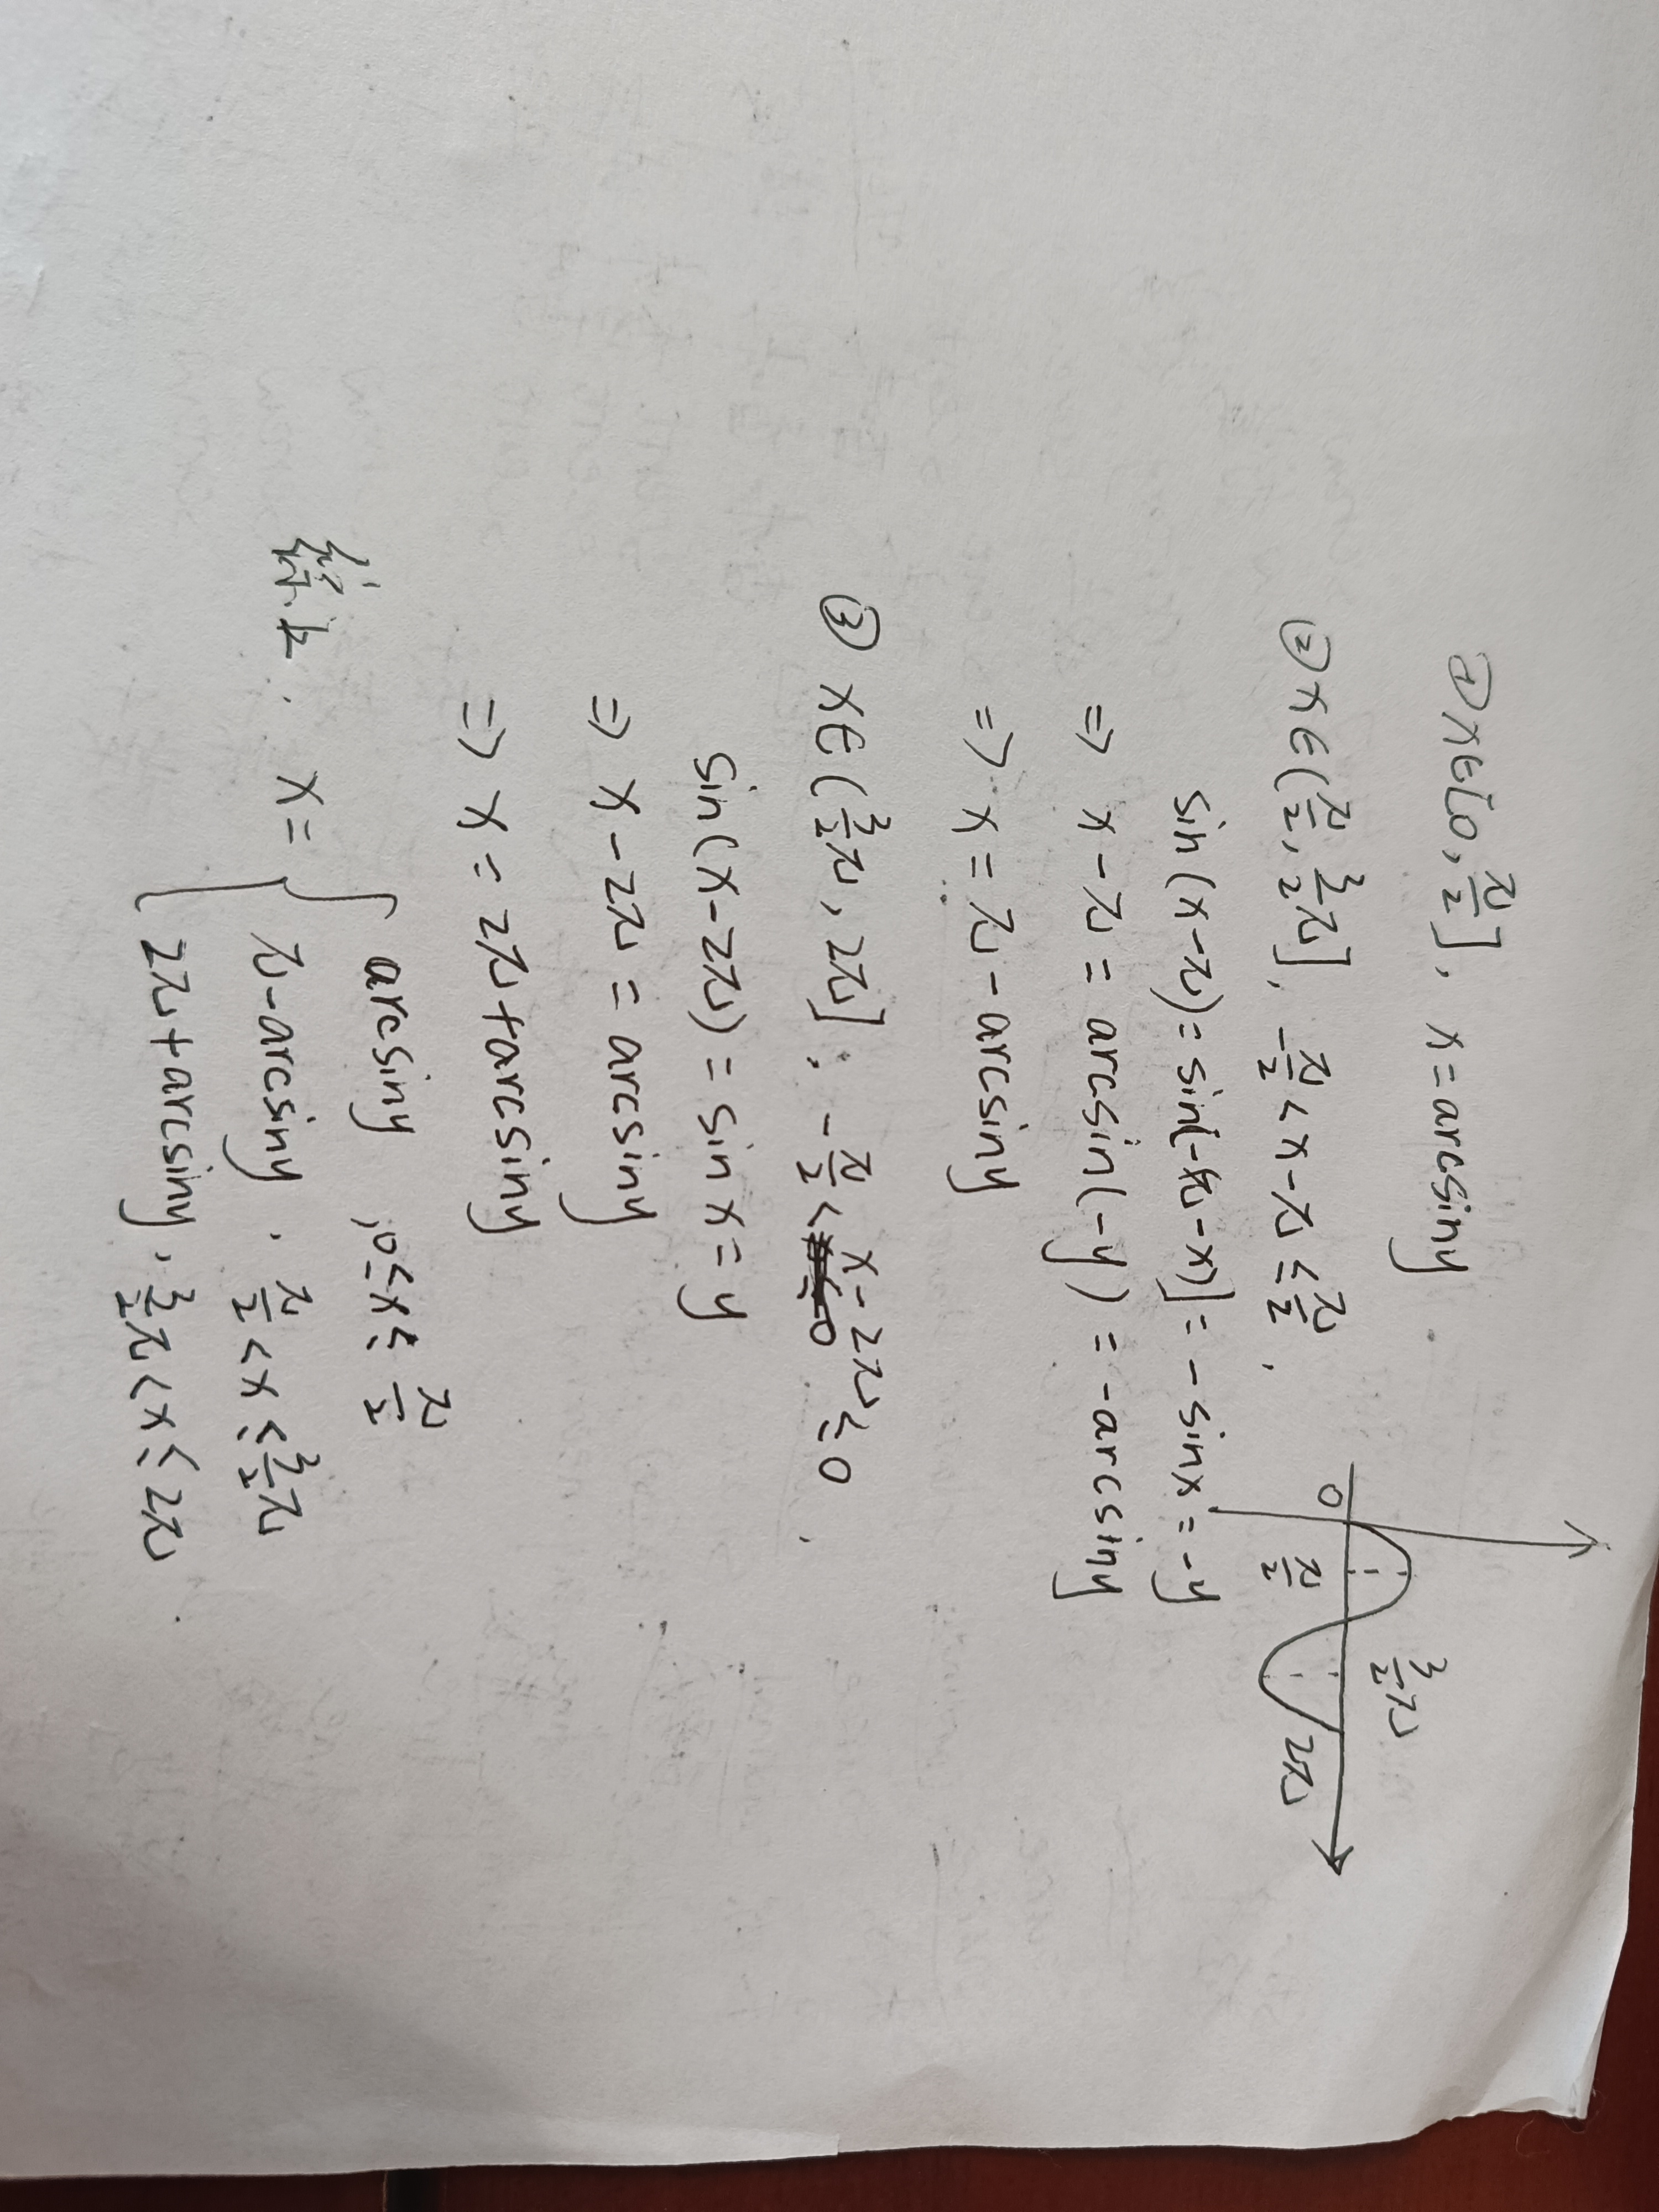 ① x∈[0, π/2], x=arcsiny
② x∈(π/2, 3/2π], -π/2<x-π≤π/2,
sin(x-π)=sin[-(π-x)]=-sinx=-y
⇒ x-π=arcsin(-y)=-arcsiny
⇒ x=π-arcsiny
③ x∈(3/2π, 2π], -π/2<x-2π≤0.
sin(x-2π)=sinx=y
⇒ x-2π=arcsiny
⇒ x=2π+arcsiny
综上. x={ arcsiny, 0≤x≤π/2
π-arcsiny, π/2<x≤3/2π
2π+arcsiny, 3/2π<x≤2π.
0 π/2 3/2π 2π